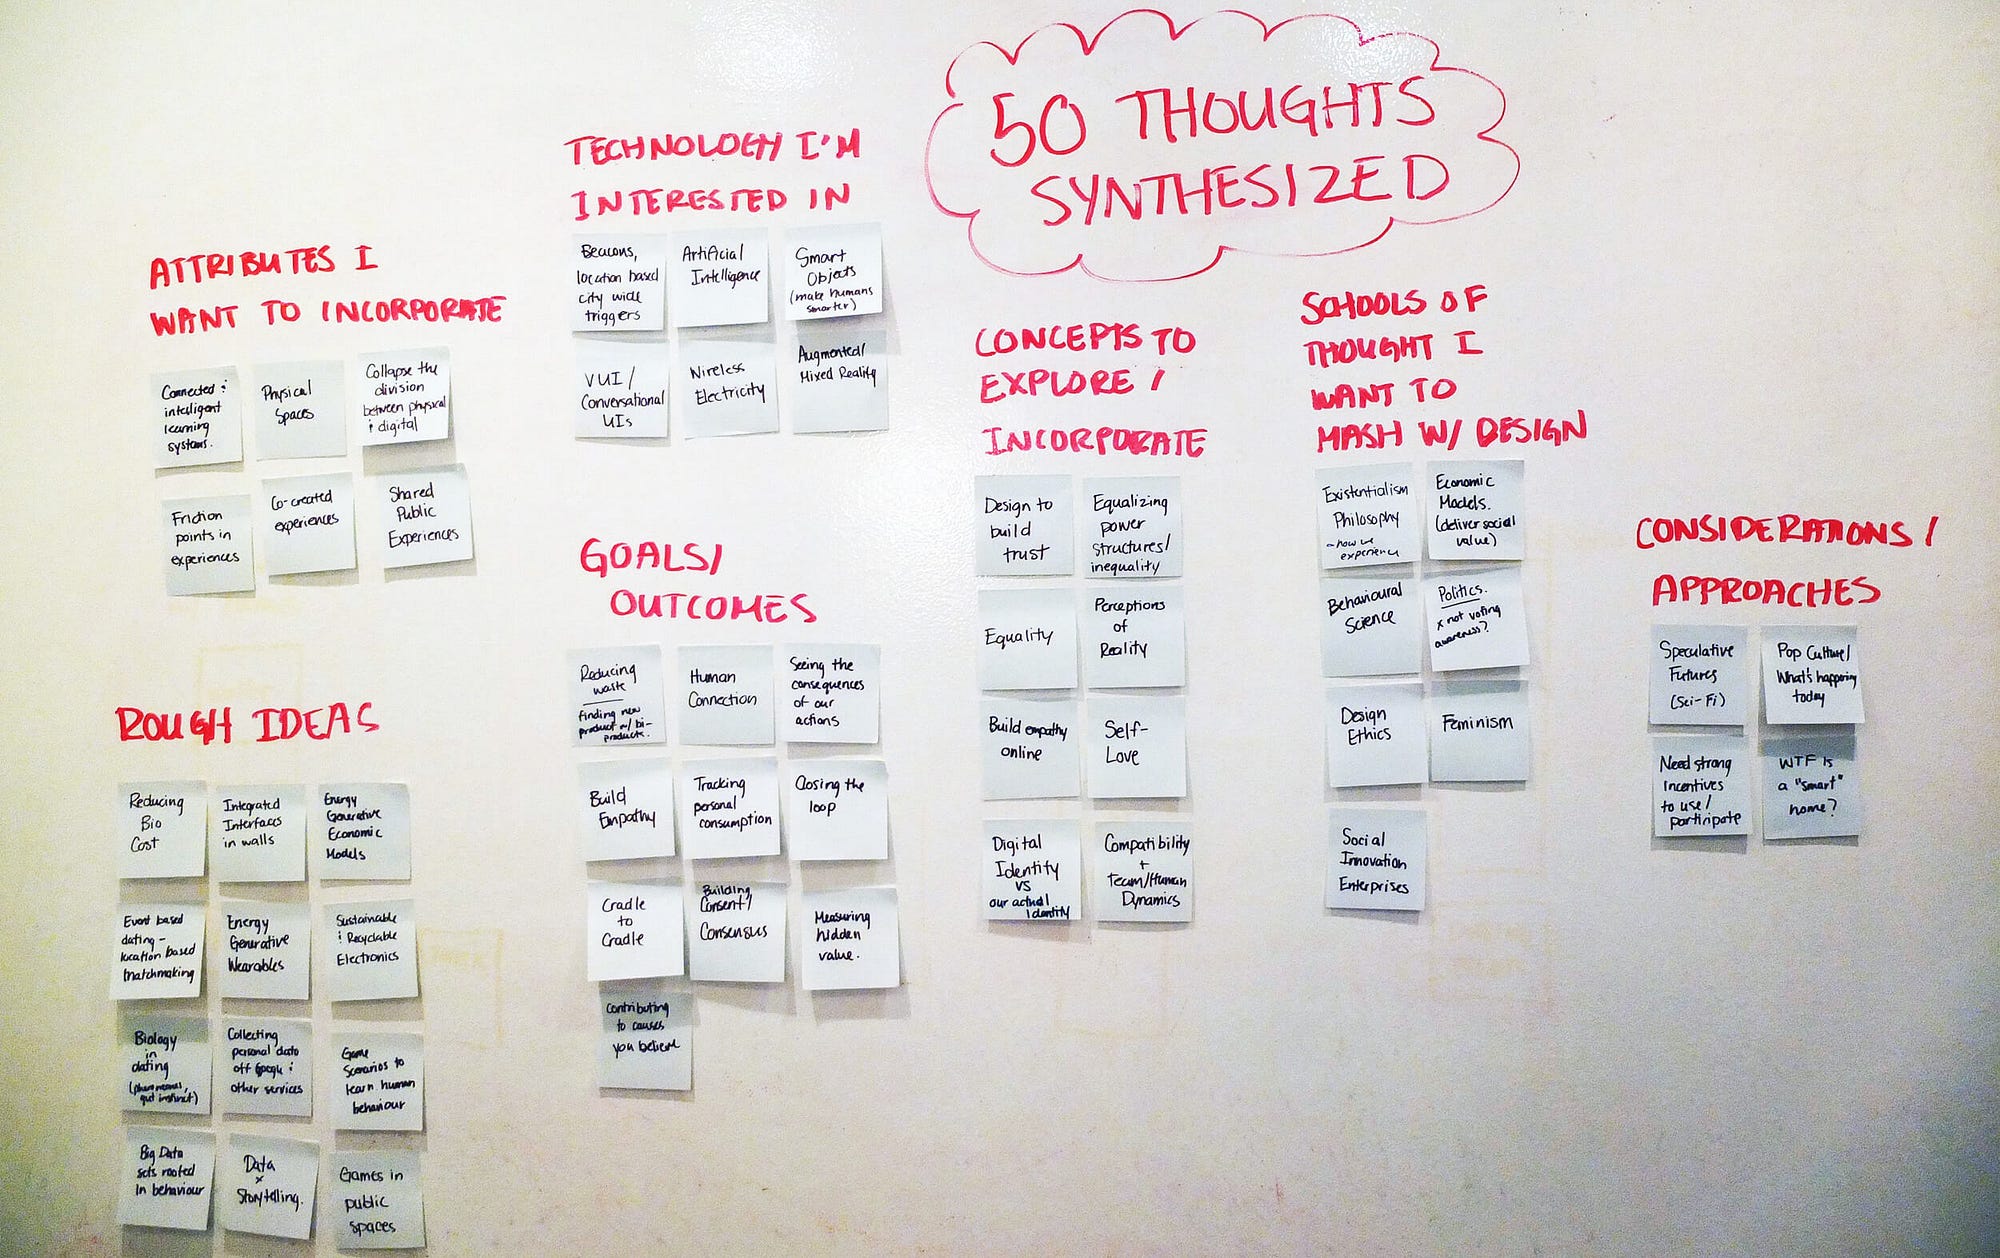 50 THOUGHTS
SYNTHESIZED
ATTRIBUTES I
WANT TO INCORPORATE
Connected &
intelligent
learning
systems.
Physical
Spaces
Collapse the
division
between physical
& digital
Friction
points in
experiences
Co-created
experiences
Shared
Public
Experiences
TECHNOLOGY I'M
INTERESTED IN
Beacons,
location based
city wide
triggers
Artificial
Intelligence
Smart
Objects
(make humans
smarter)
VUI /
Conversational
UIs
Wireless
Electricity
Augmented/
Mixed Reality
GOALS/
OUTCOMES
Reducing
waste
finding new
product w/ bi-
products.
Human
Connection
Seeing the
consequences
of our
actions
Build
Empathy
Tracking
personal
consumption
Closing the
loop
Cradle
to
Cradle
Building
Consent/
Consensus
Measuring
hidden
value.
Contributing
to causes
you believe
ROUGH IDEAS
Reducing
Bio
Cost
Integrated
Interfaces
in walls
Energy
Generative
Economic
Models
Event based
dating -
location based
matchmaking
Energy
Generative
Wearables
Sustainable
& Recyclable
Electronics
Biology
in
dating
(pheromones,
gut instinct)
Collecting
personal data
off Google &
other services
Game
Scenarios to
learn human
behaviour
Big Data
sets rooted
in behaviour
Data
x
Storytelling.
Games in
public
spaces
CONCEPTS TO
EXPLORE /
INCORPORATE
Design to
build
trust
Equalizing
power
structures/
inequality
Equality
Perceptions
of
Reality
Build empathy
online
Self-
Love
Digital
Identity
vs
our actual Identity
Compatibility
+
Team/Human
Dynamics
SCHOOLS OF
THOUGHT I
WANT TO
MASH W/ DESIGN
Existentialism
Philosophy
- how we
experience
Economic
Models.
(deliver social
value)
Behavioural
Science
Politics.
x not voting
awareness?
Design
Ethics
Feminism
Social
Innovation
Enterprises
CONSIDERATIONS /
APPROACHES
Speculative
Futures
(Sci-Fi)
Pop Culture/
What's happening
today
Need strong
Incentives
to use/
participate
WTF is
a "smart"
home?